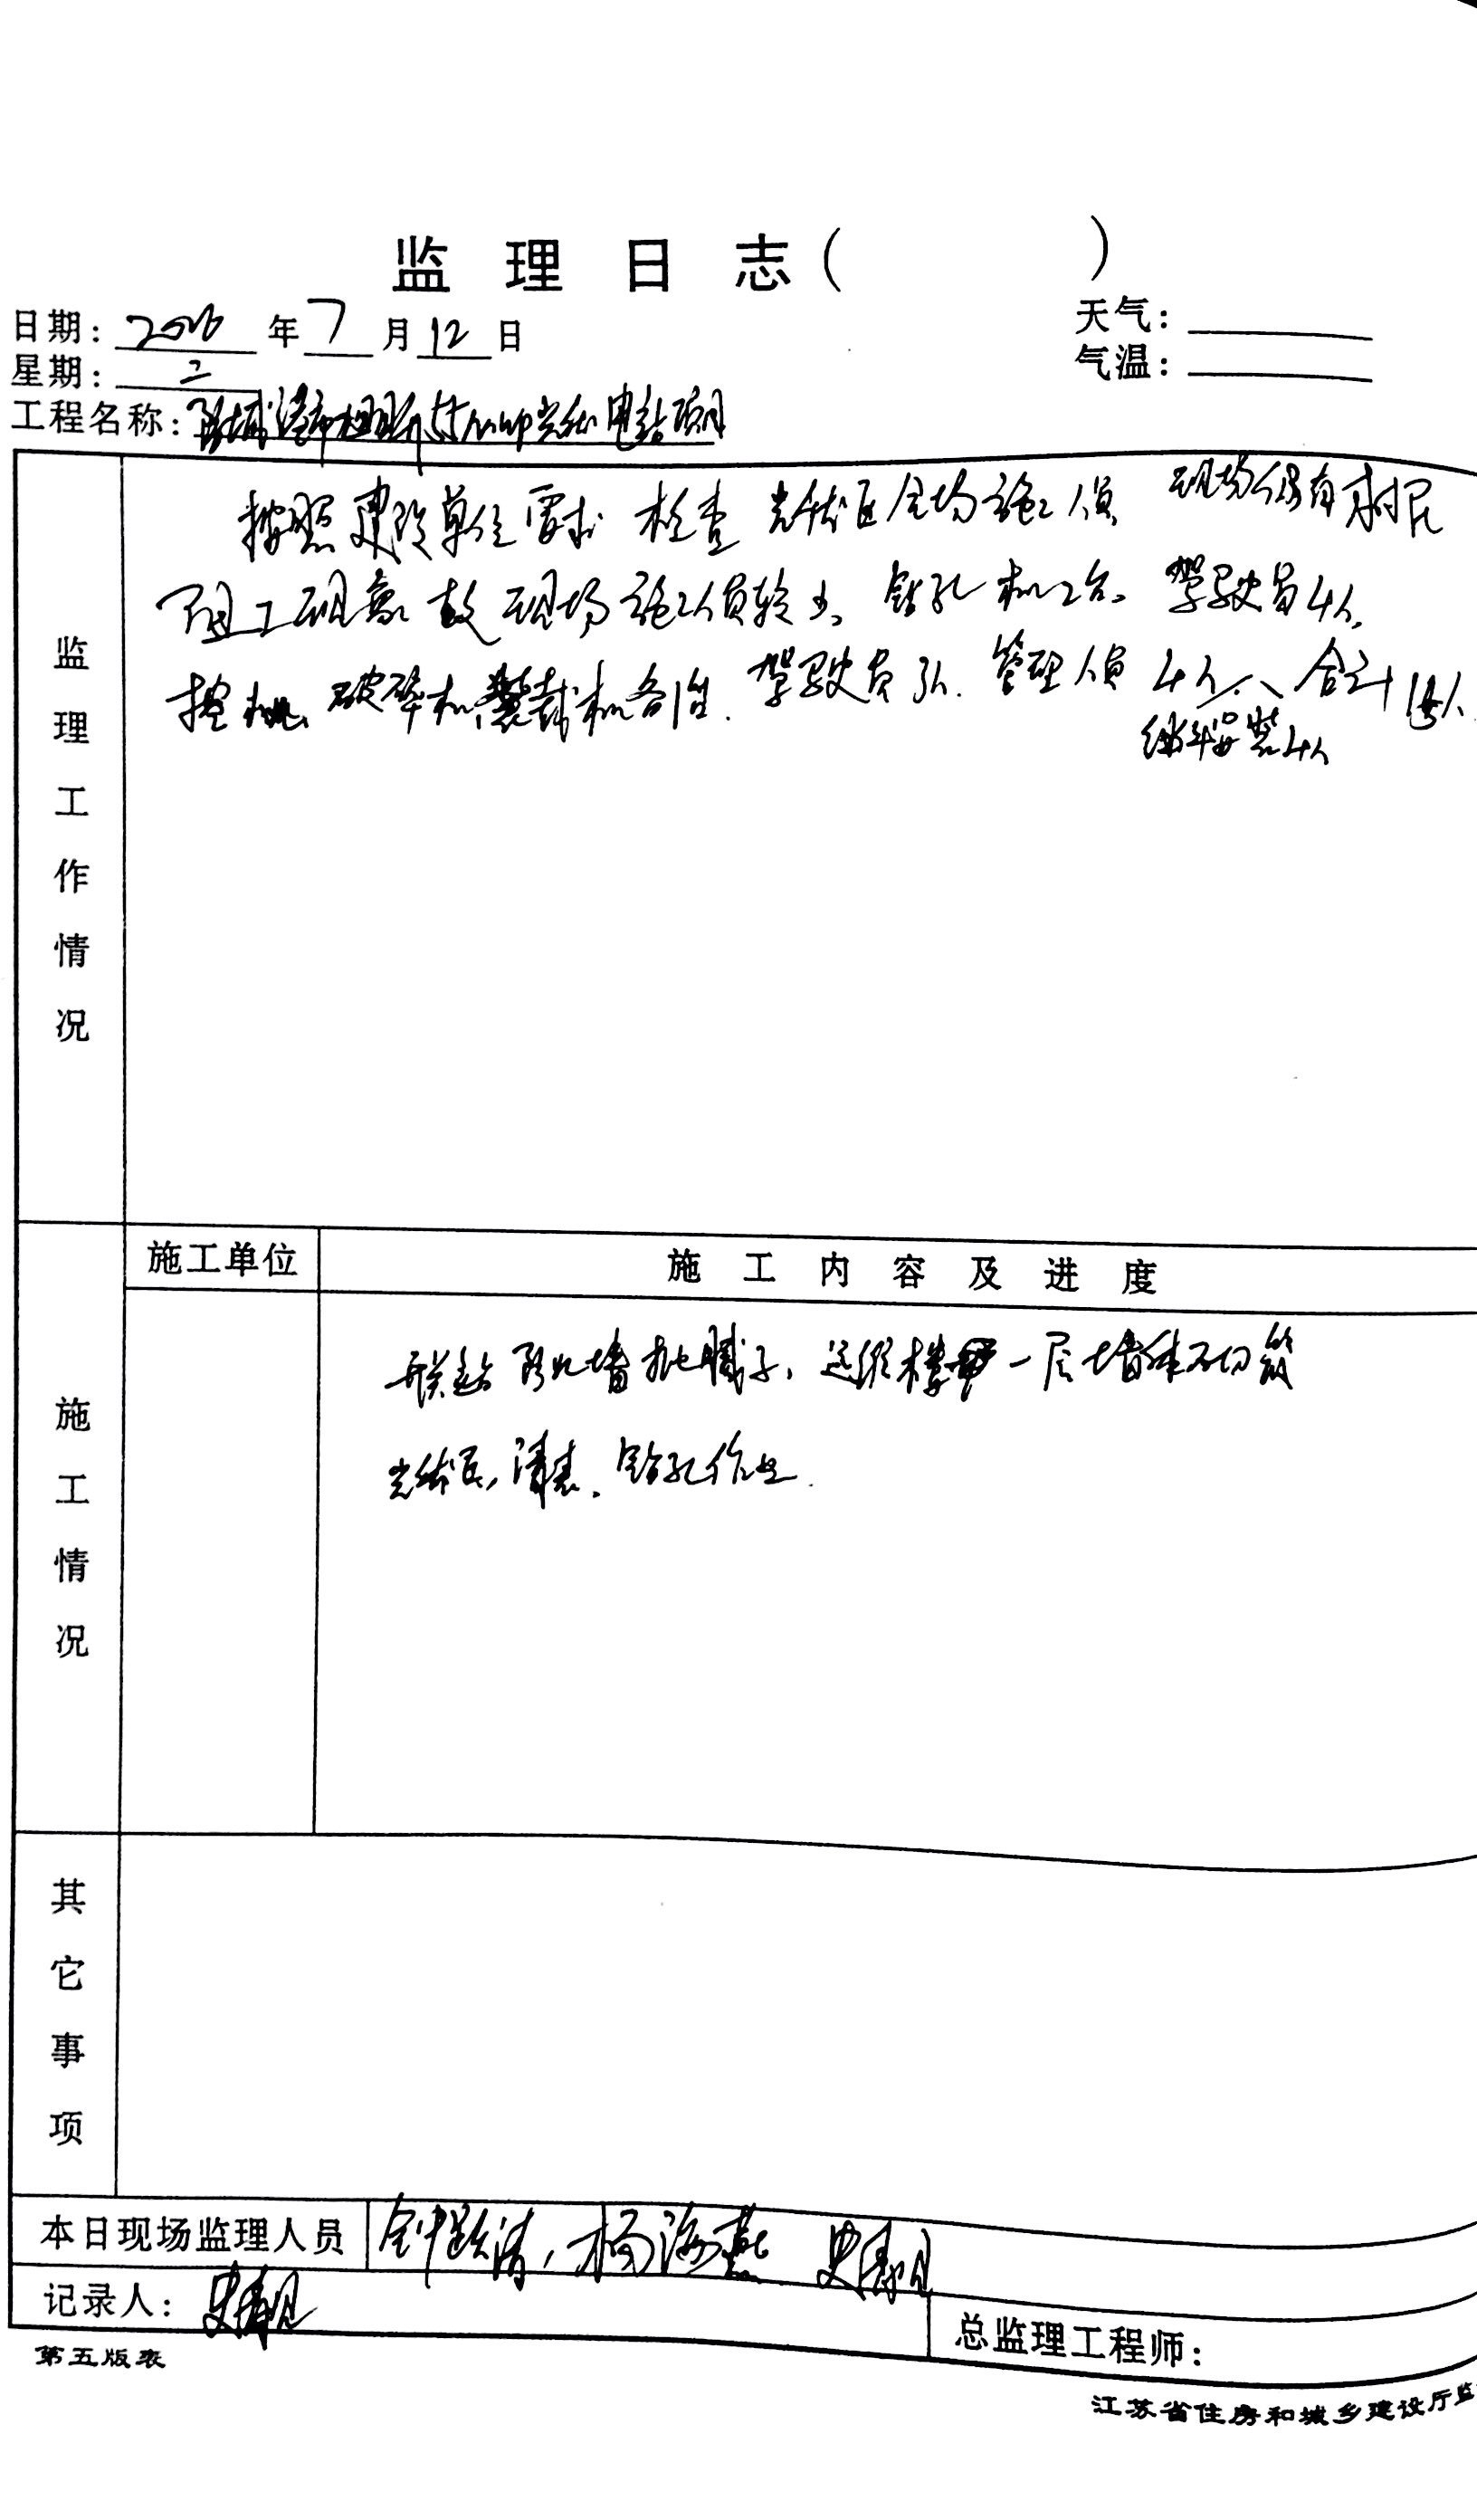 监 理 日 志 ( )
日期： 2016 年 7 月 12 日
天气：
星期： 二
气温：
工程名称： 光伏电站项目
按照建设单位要求 检查 光伏区在场施工人员 现场仍有村民
阻工现象 故现场施工人员较少 钻孔机2台 驾驶员4人
挖机、破碎机、装载机各1台. 驾驶员3人. 管理人员 4人 合计15人
组件安装4人
监理工作情况
施工单位
施 工 内 容 及 进 度
施工情况
墙批腻子, 一层墙体砌筑
光伏区, 清表. 钻孔作业.
其它事项
本日现场监理人员
记录人：
总监理工程师：
第五版表
江苏省住房和城乡建设厅监